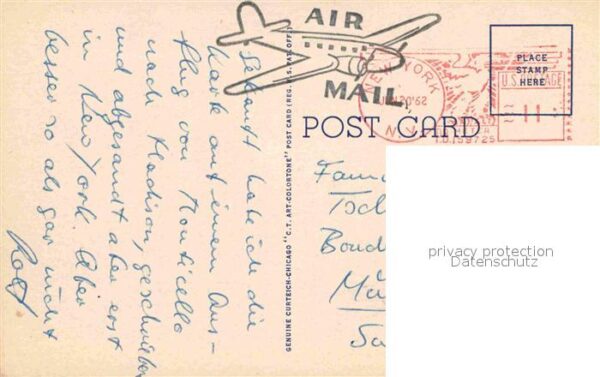 AIR
MAIL
NEW YORK
N.Y.
PLACE
STAMP
HERE
U.S. POSTAGE
11
POST CARD
Gekauft habe ich die
Karte auf einem Aus-
flug von Monticello
nach Madison, geschrieben
und abgesandt aber erst
in New York. Aber
besser so als gar nicht
Rolf
GENUINE CURTEICH-CHICAGO "C.T. ART-COLORTONE" POST CARD (REG. U.S. PAT. OFF.)
privacy protection
Datenschutz